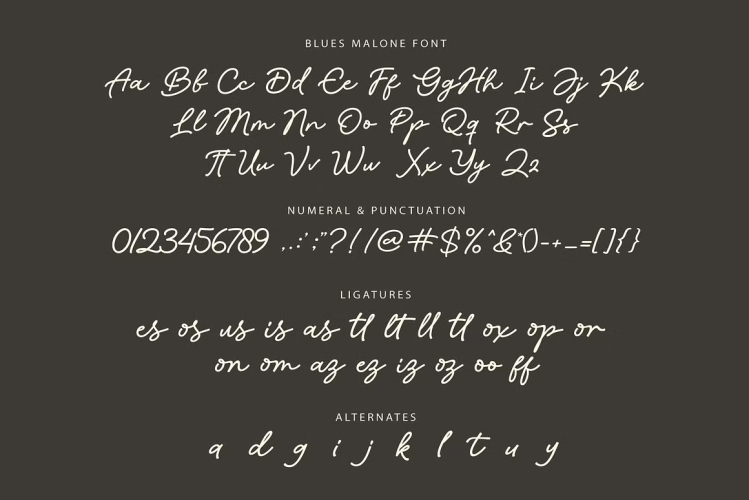 BLUES MALONE FONT
Aa Bb Cc Dd Ee Ff GgHh Ii Jj Kk
Ll Mm Nn Oo Pp Qq Rr Ss
Tt Uu Vv Ww Xx Yy Zz
NUMERAL & PUNCTUATION
0123456789 ,.:';"?!/|@#$%^&*()-+_=[]{}
LIGATURES
es os us is as tl lt ll tt ox op or
on om az ez iz oz oo ff
ALTERNATES
a d g i j k l t u y